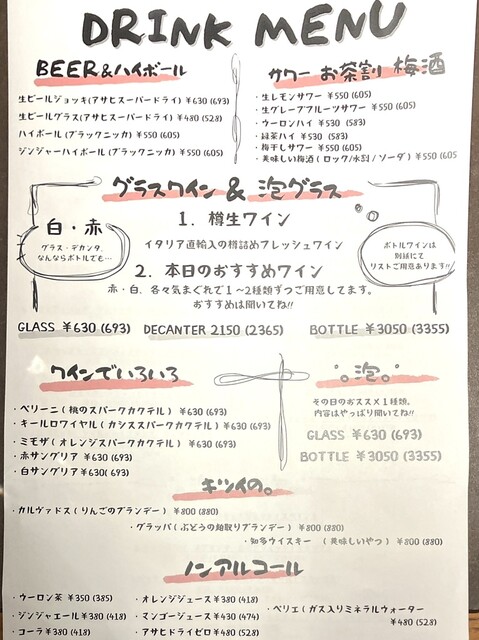 DRINK MENU
BEER&ハイボール
生ビールジョッキ(アサヒスーパードライ) ¥630 (693)
生ビールグラス(アサヒスーパードライ) ¥480 (528)
ハイボール (ブラックニッカ) ¥550 (605)
ジンジャーハイボール (ブラックニッカ) ¥550 (605)
サワー お茶割 梅酒
・生レモンサワー ¥550 (605)
・生グレープフルーツサワー ¥550 (605)
・ウーロンハイ ¥530 (583)
・緑茶ハイ ¥530 (583)
・梅干しサワー ¥550 (605)
・美味しい梅酒 ( ロック/水割 / ソーダ ) ¥550 (605
グラスワイン & 泡グラス
白・赤
グラス・デカンタ、
なんならボトルでも…
1. 樽生ワイン
イタリア直輸入の樽詰めフレッシュワイン
2. 本日のおすすめワイン
赤・白、各々気まぐれで1〜2種類ずつご用意してます。
おすすめは聞いてね!!
ボトルワインは
別紙にて
リストご用意あります!!
GLASS ¥630 (693) DECANTER 2150 (2365) BOTTLE ¥3050 (3355)
ワインでいろいろ
・ベリーニ ( 桃のスパークカクテル ) ¥630 (693)
・キールロワイヤル ( カシススパークカクテル ) ¥630 (693)
・ミモザ ( オレンジスパークカクテル ) ¥630 (693)
・赤サングリア ¥630 (693)
・白サングリア ¥630( 693)
。泡。
その日のおススメ1種類。
内容はやっぱり聞いてね!!
GLASS ¥630 (693)
BOTTLE ¥3050 (3355)
キツイの。
・カルヴァドス ( りんごのブランデー ) ¥800 (880)
・グラッパ ( ぶどうの粕取りブランデー ) ¥800 (880)
・知多ウイスキー ( 美味しいやつ ) ¥800 (880)
ノンアルコール
・ウーロン茶 ¥350 (385)
・ジンジャエール ¥380 (418)
・コーラ ¥380 (418)
・オレンジジュース ¥380 (418)
・マンゴージュース ¥430 (474)
・アサヒドライゼロ ¥480 (528)
・ペリエ ( ガス入りミネラルウォーター
¥480 (528)